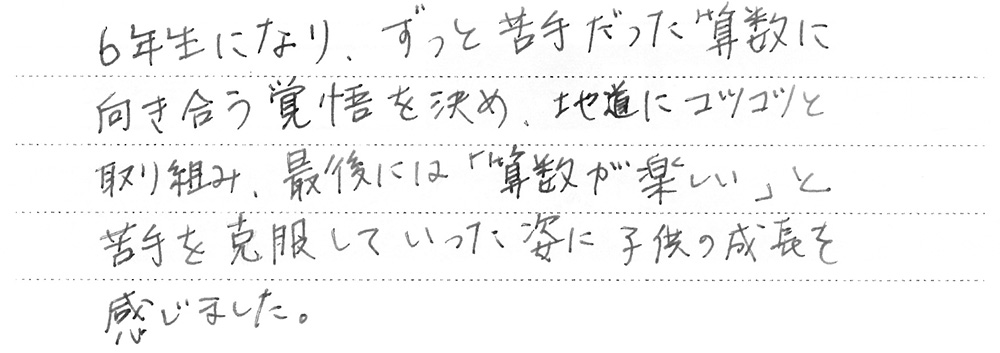 6年生になり、ずっと苦手だった算数に
向き合う覚悟を決め、地道にコツコツと
取り組み、最後には「算数が楽しい」と
苦手を克服していった姿に子供の成長を
感じました。